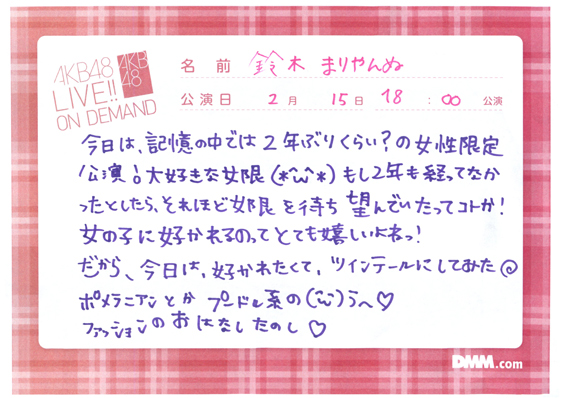 AKB48
LIVE!!
ON DEMAND
AKB
48
名前 鈴木 まりやんぬ
公演日 2月 15日 18:00 公演
今日は、記憶の中では2年ぶりくらい?の女性限定
公演!大好きな女限(*^ω^*)もし2年も経ってなか
ったとしたら、それほど女限を待ち望んでいたってコトか!
女の子に好かれるのってとても嬉しいよねっ!
だから、今日は、好かれたくて、ツインテールにしてみた@
ポメラニアンとか プードル系の(^ω^)うへ♡
ファッションのおはなしたのし♡
DMM.com